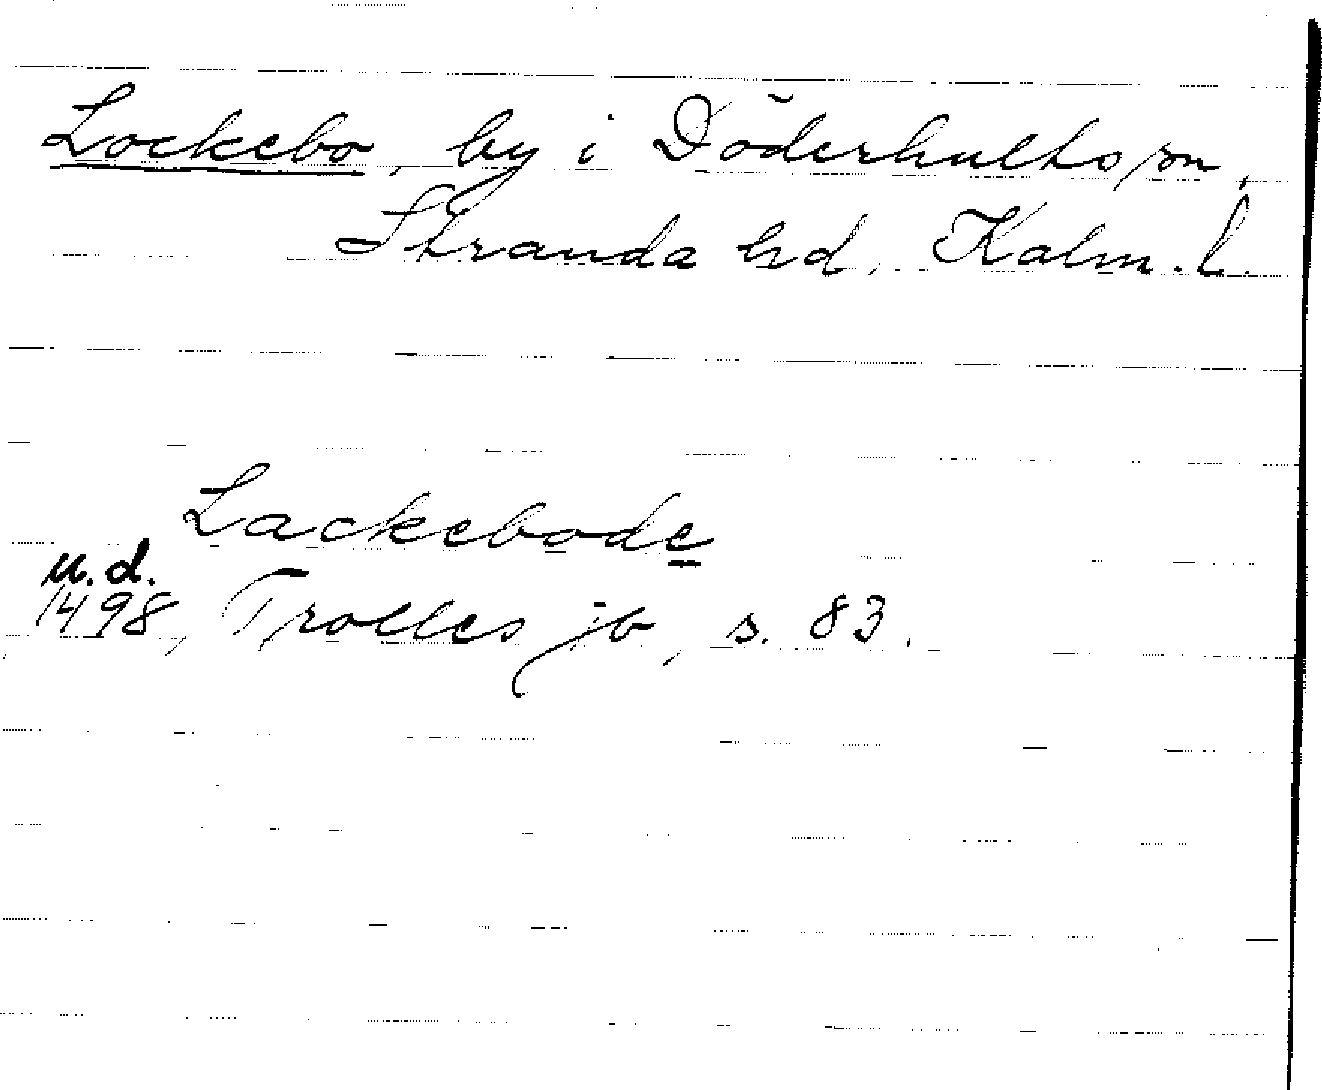 Lockebo, by i Döderhults sn,
Stranda hd, Kalm. l.
Lackebode
u.d.
1498, Trolles jb, s. 83.